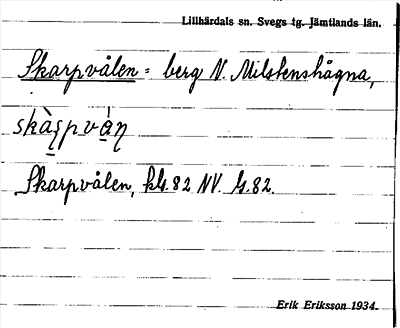 Lillhärdals sn. Svegs tg. Jämtlands län.
Skarpvålen = berg N. Milstenshågna,
Skarpvålen, kbl. 82 NV.
Erik Eriksson 1934.